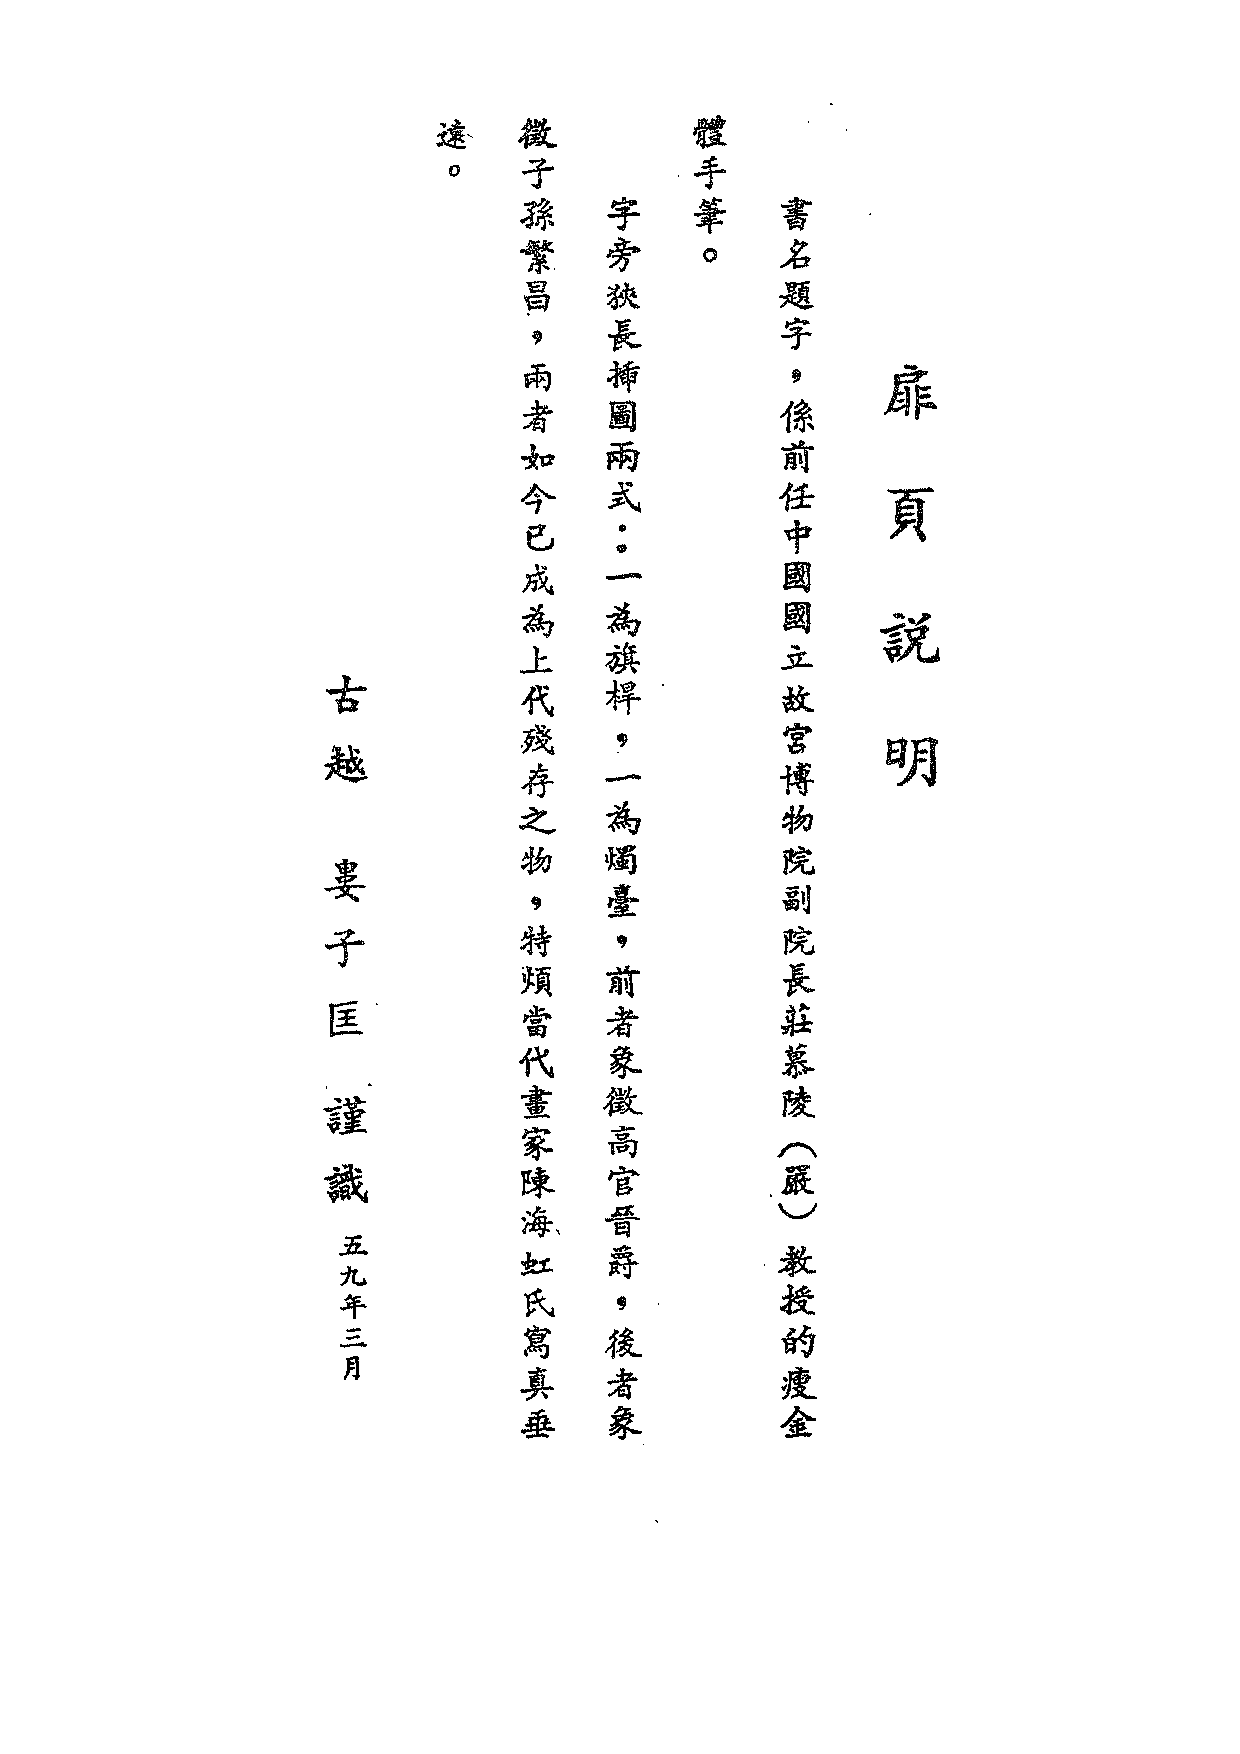 扉頁説明
書名題字，係前任中國國立故宮博物院副院長莊慕陵（嚴）教授的瘦金
體手筆。
字旁狹長插圖兩式：一為旗桿，一為燭臺，前者象徵高官晉爵，後者象
徵子孫繁昌，兩者如今已成為上代殘存之物，特煩當代畫家陳海虹氏寫真垂
遠。
古越　婁子匡　謹識　五九年三月